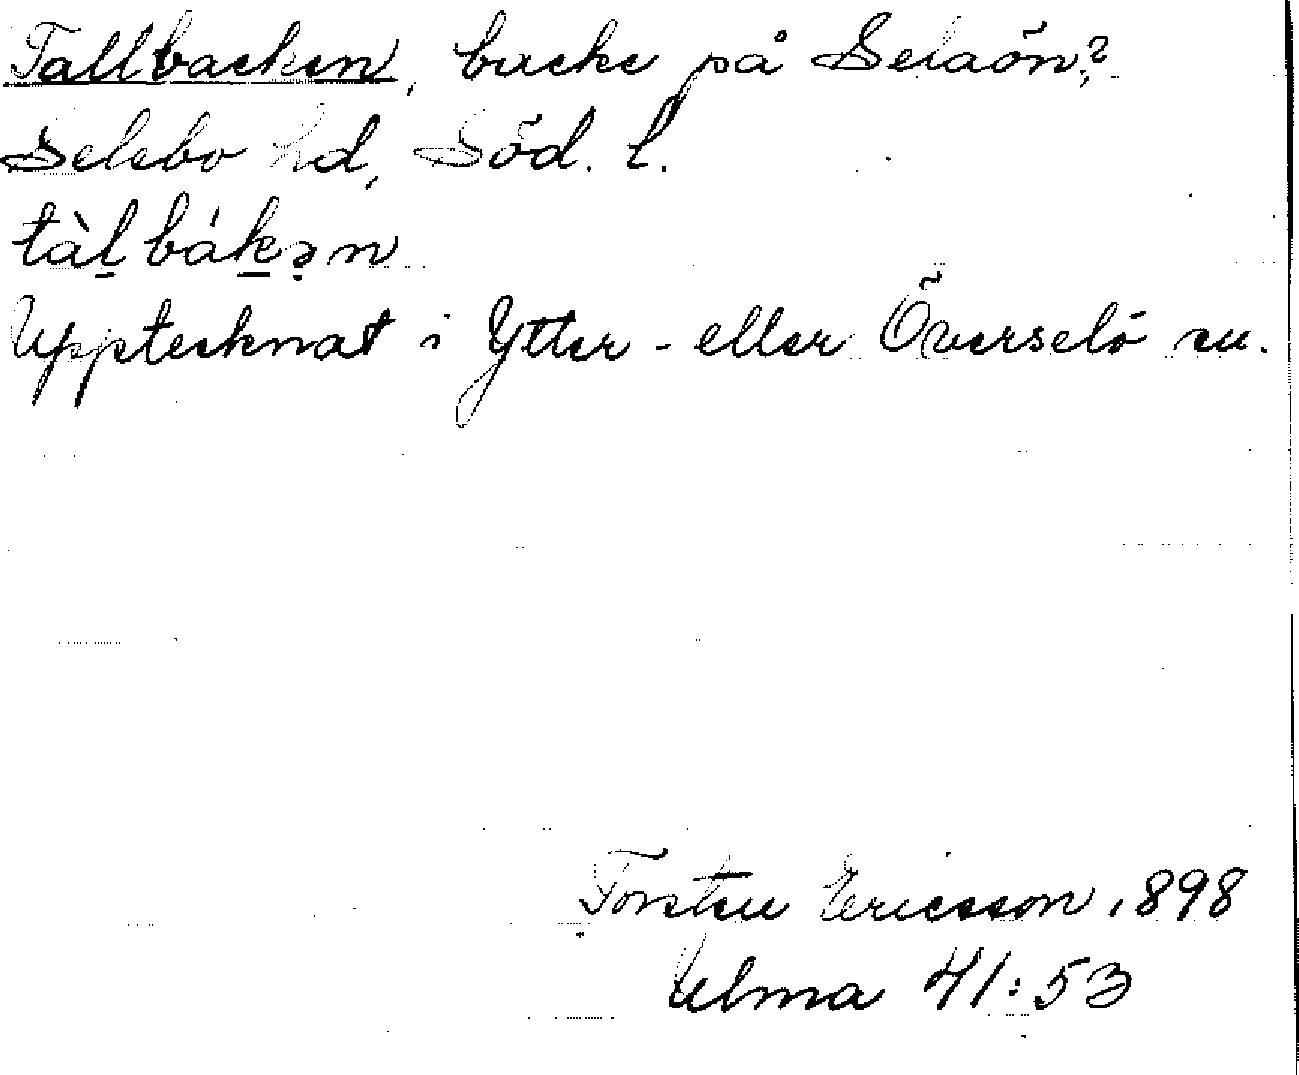 Tallbacken, backe på Selaön?
Selebo hd, Söd. l.
tàl̠bák̠ə̣n
Upptecknat i Ytter- eller Överselö sn.
Torsten Ericsson 1898
Ulma 41:53